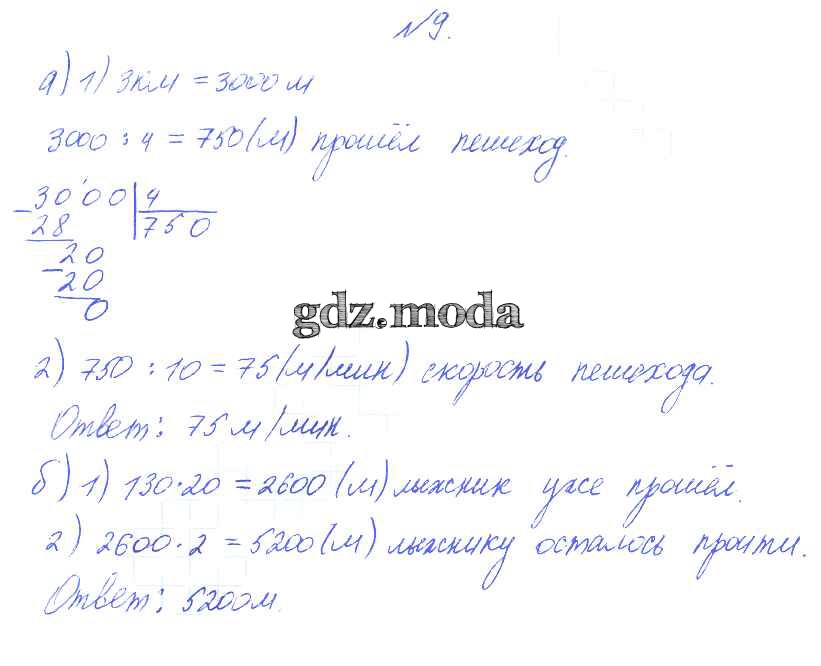 №9.
а) 1) 3км = 3000м
3000 : 4 = 750(м) прошёл пешеход.
3000 | 4
- 28 | 750
20
- 20
0
gdz.moda
2) 750 : 10 = 75(м/мин) скорость пешехода.
Ответ: 75м/мин.
б) 1) 130·20 = 2600(м) лыжник уже прошёл.
2) 2600·2 = 5200(м) лыжнику осталось пройти.
Ответ: 5200м.